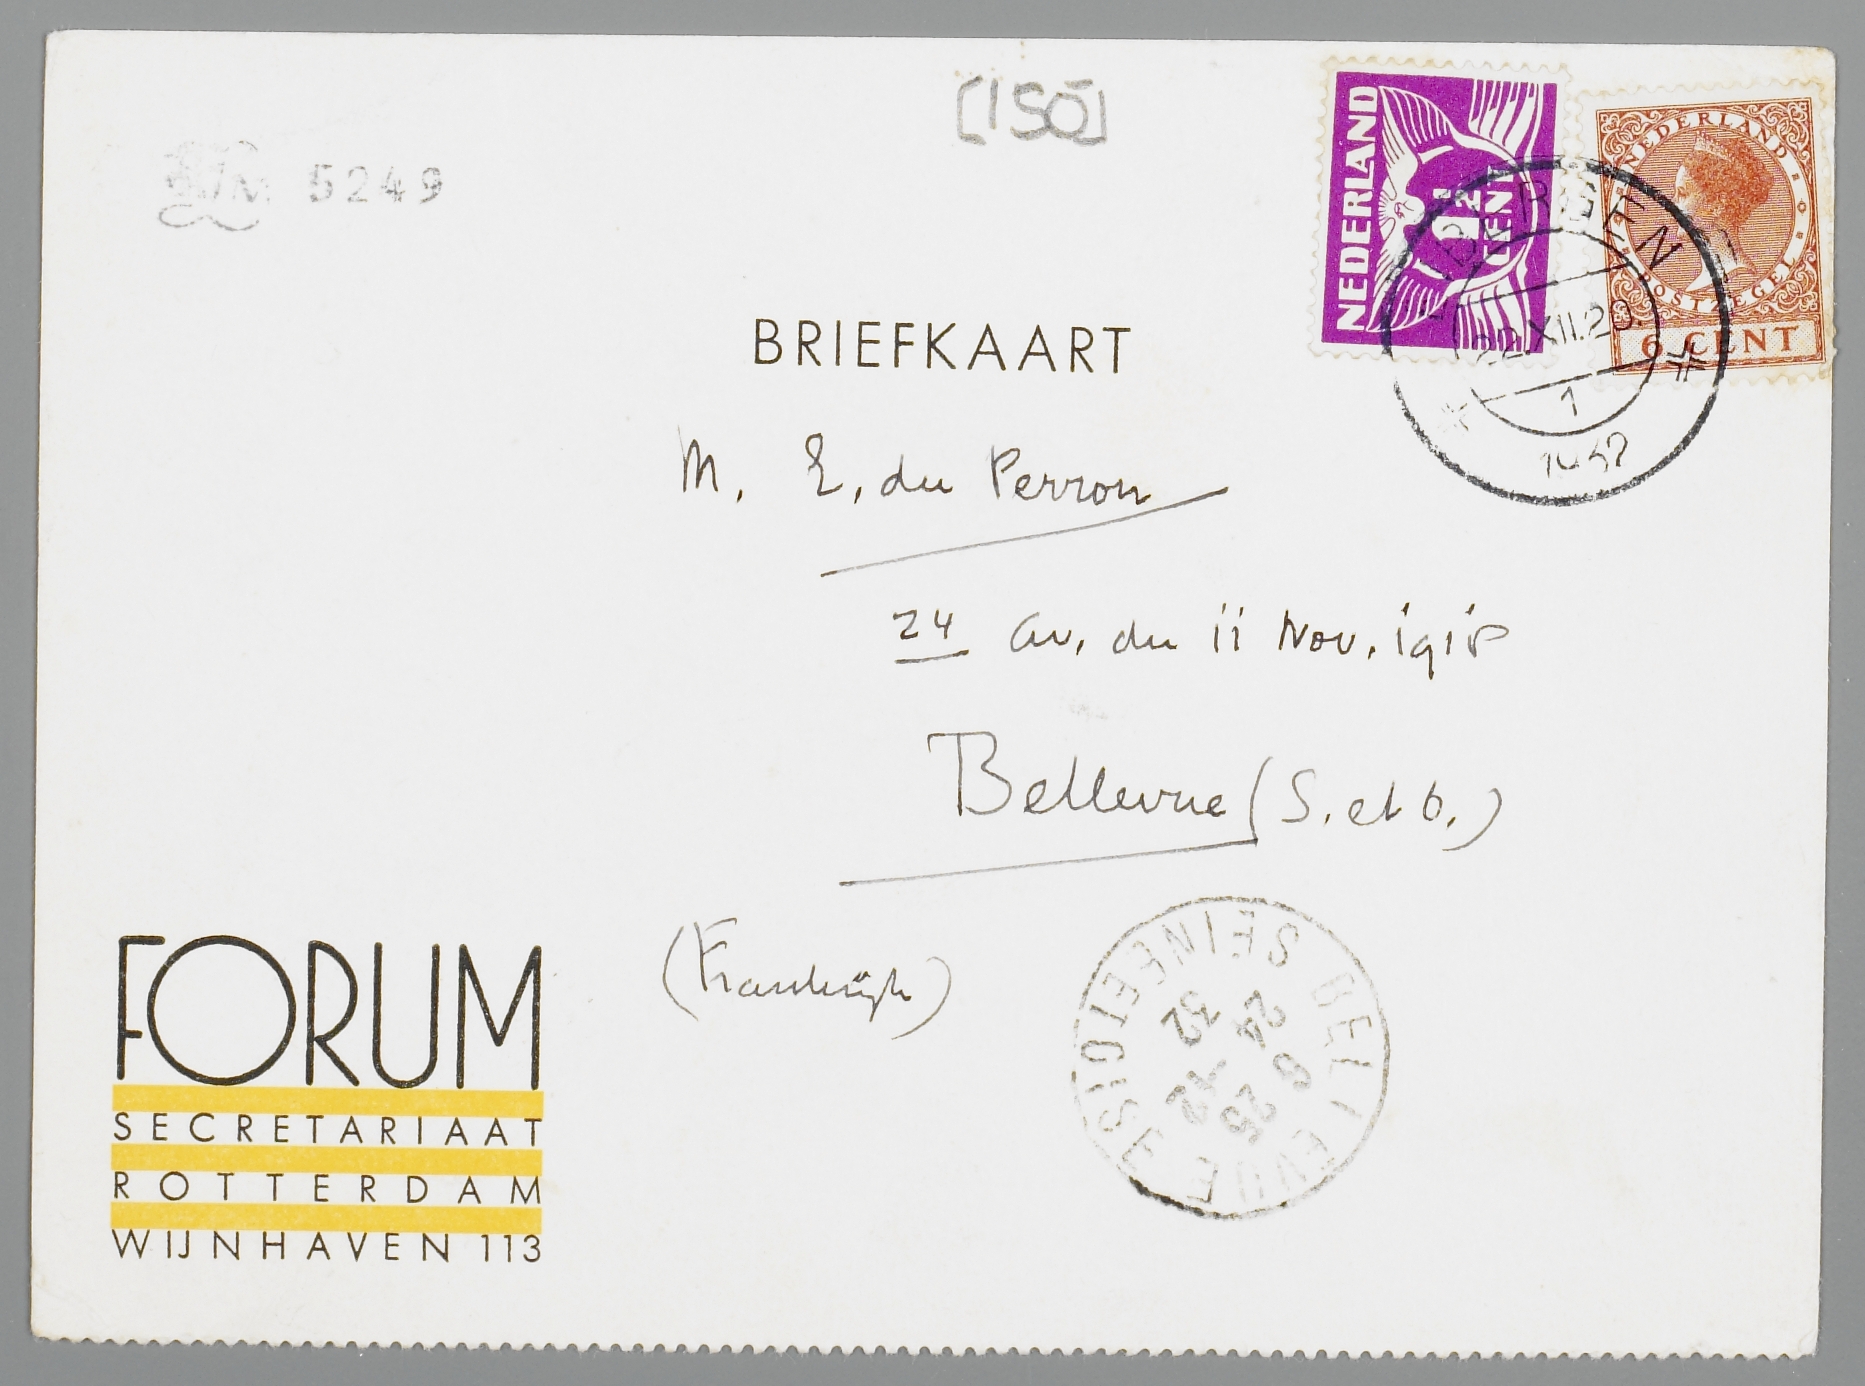 [150]
5249
NEDERLAND
1½
CENT
NEDERLAND
POSTZEGEL
6 CENT
22.XII.20.
1
1932
BRIEFKAART
M. E. du Perron
24 av. du 11 Nov. 1918
Bellevue (S. et O.)
(Frankrijk)
BELLEVUE
SEINE ET OISE
24
25
12
32
FORUM
SECRETARIAAT
ROTTERDAM
WIJNHAVEN 113